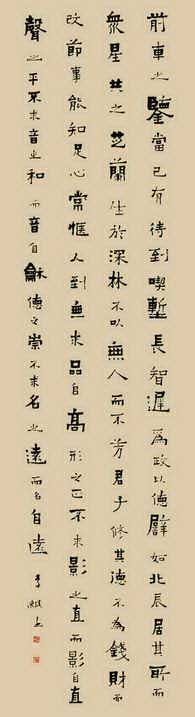 前車之鑒當己有待到喫塹長智遲為政以德譬如北辰居其所而
衆星共之芝蘭生於深林不以無人而不芳君子修其德不為錢財而
改節事能知足心常愜人到無求品自高形之正不求影之直而影自直
聲之平不求音之和而音自龢德之崇不求名之遠而名自遠